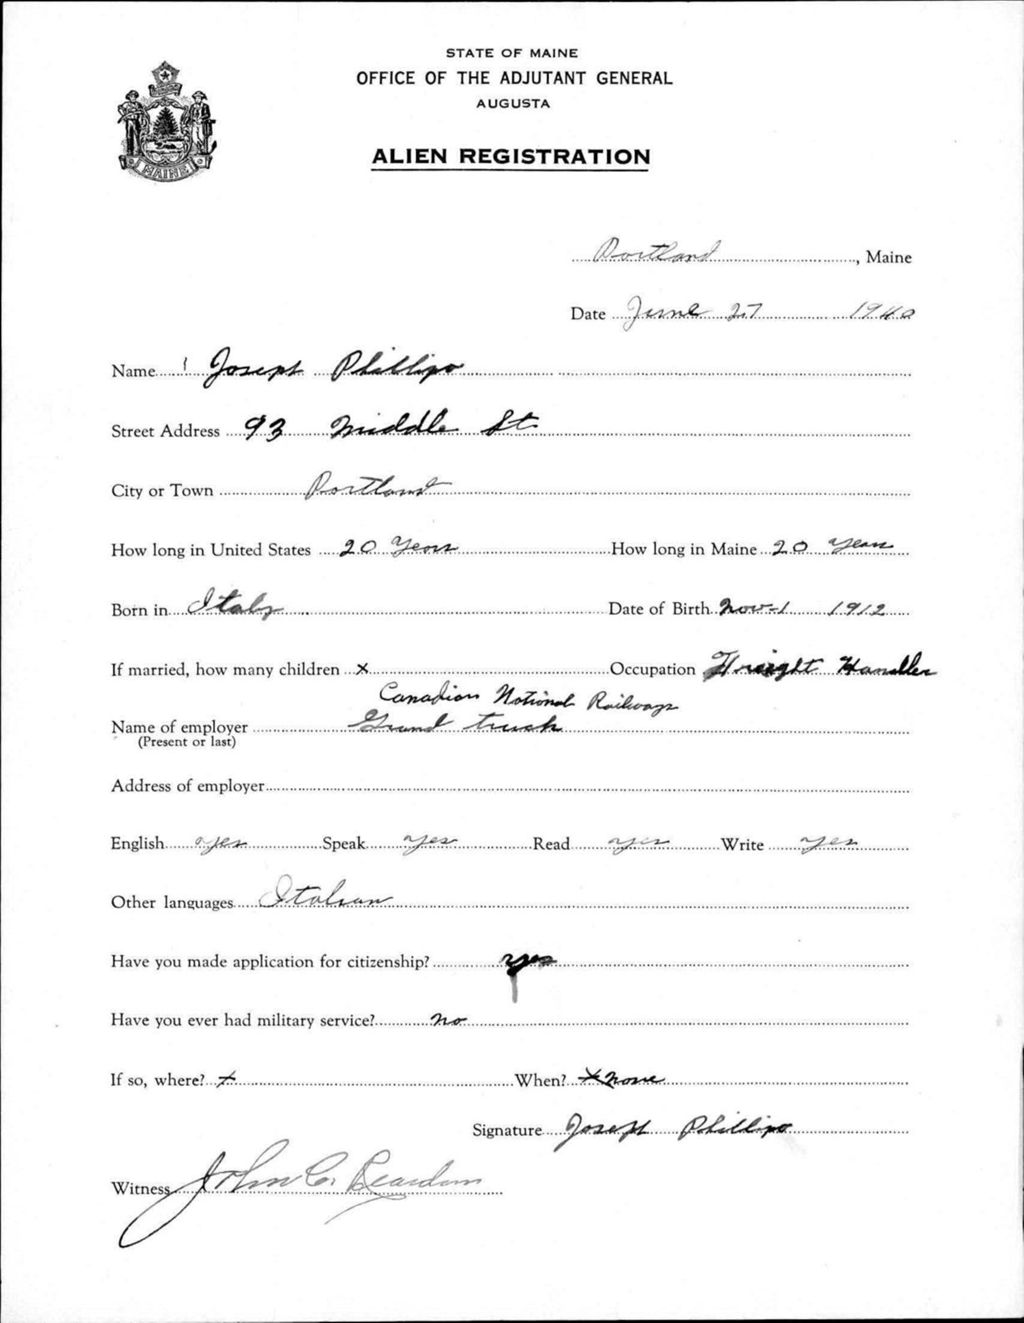 STATE OF MAINE
OFFICE OF THE ADJUTANT GENERAL
AUGUSTA
ALIEN REGISTRATION
MAINE
Portland, Maine
Date June 27 1940
Name Joseph Phillipo
Street Address 93 Middle St
City or Town Portland
How long in United States 20 Years How long in Maine 20 Years
Born in Italy Date of Birth Nov-1 1912
If married, how many children x Occupation Freight Handler
Canadian National Railways
Name of employer Grand trunk
(Present or last)
Address of employer
English yes Speak yes Read yes Write yes
Other languages Italian
Have you made application for citizenship? yes
Have you ever had military service? no
If so, where? x When? x none
Signature Joseph Phillipo
Witness John C.